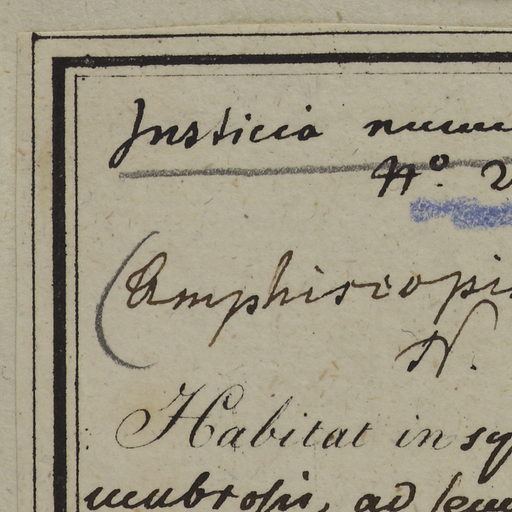 Justicia
N°. 2
(Amphiscopi
N.
Habitat in sy
umbrosis, ad